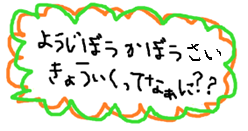 ようじぼうかぼうさい
きょういくってなぁに??